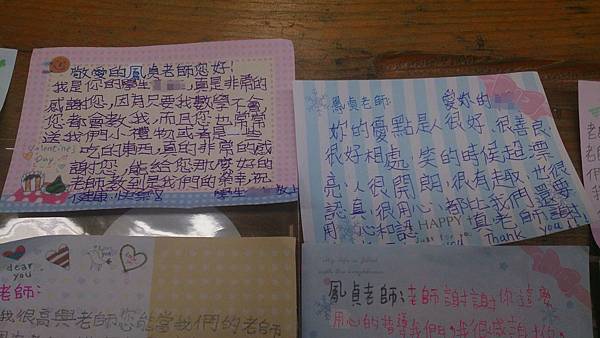 敬愛的鳳貞老師您好!
我是你的學生 真是非常的
感謝您,因為只要我數學不會,
您都會教我,而且您也常常
送我們小禮物或者是一些
吃的東西,真的非常的感
謝您,能給您那麼好的
老師教到是我們的榮幸,祝
健康,快樂
學生 敬上
Valentine's
Day
鳳貞老師:
愛妳的
妳的優點是人很好、很善良、
很好相處,笑的時候超漂
亮,人很開朗、很有趣,也很
認真、很用心,都比我們還要
用心和認 真老師謝謝
HAPPY
Thank you
dear
you
老師:
我很高興老師您能當我們的老師
鳳貞老師:老師謝謝你這麼
用心的指導我們,我很感謝